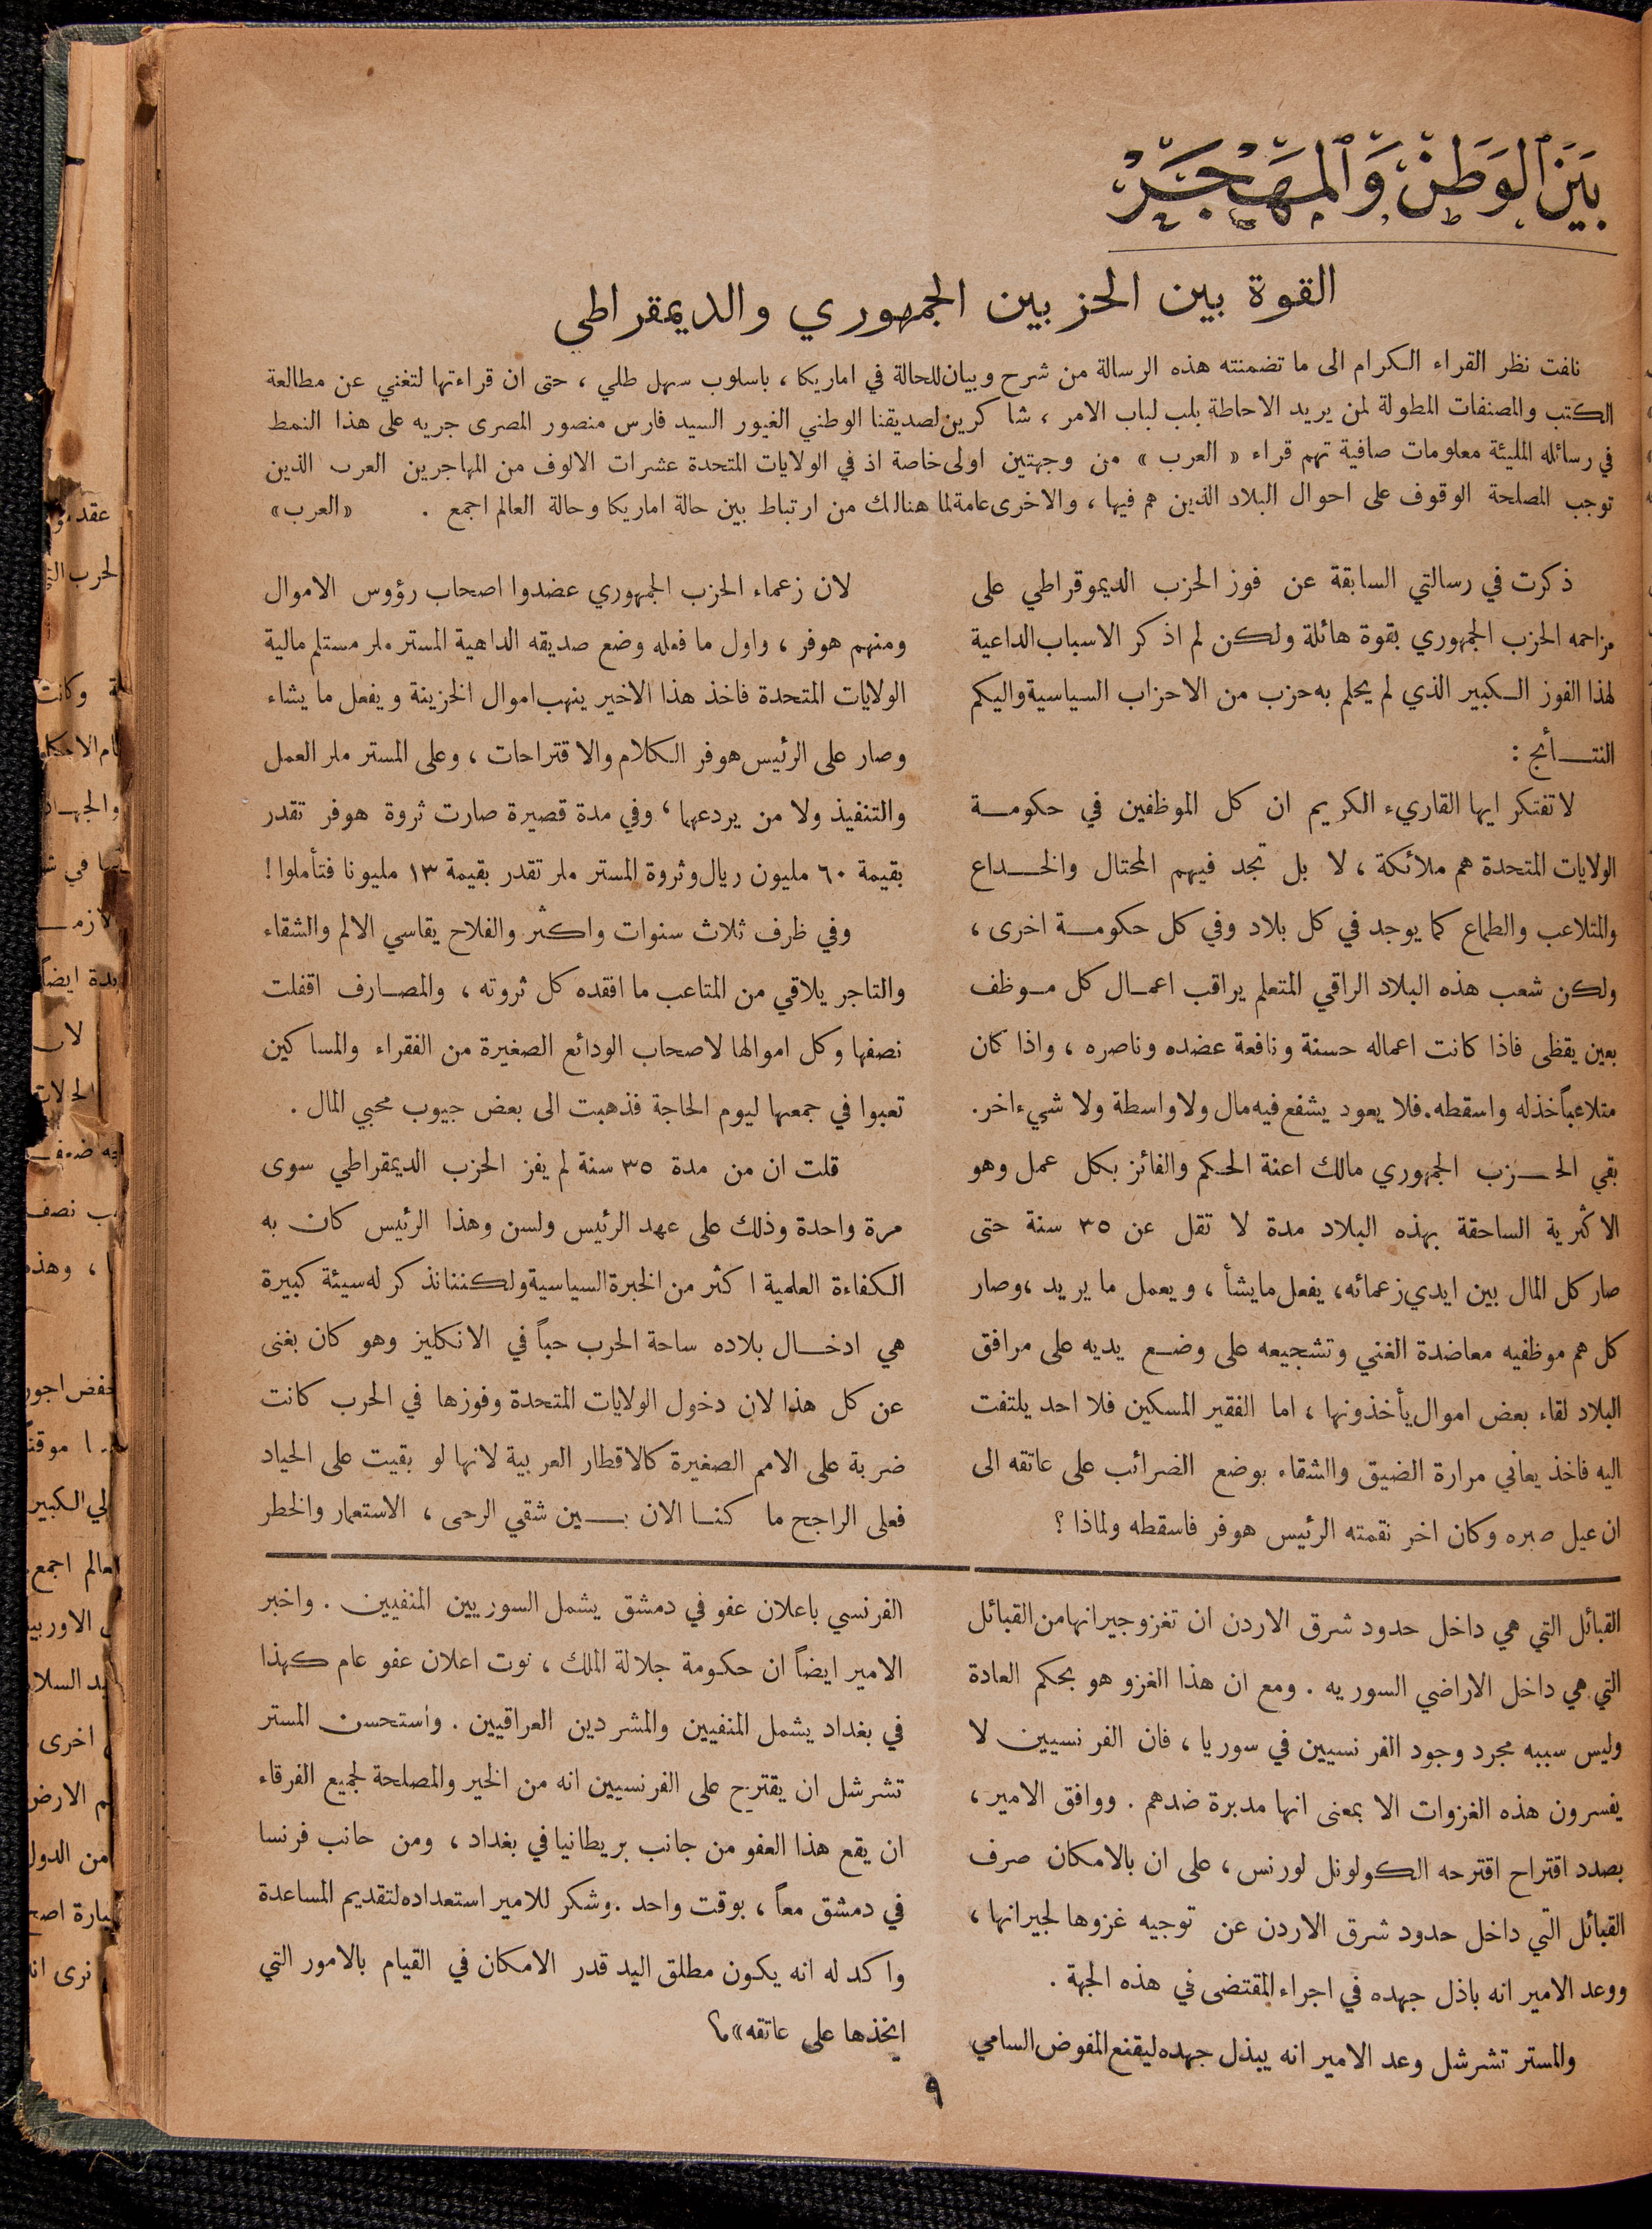 بَيْنَ ٱلوَطَنْ وَٱلْمَهْجَرْ
القوة بين الحزبين الجمهوري والديمقراطي
نلفت نظر القراء الكرام الى ما تضمنته هذه الرسالة من شرح وبيان للحالة في اماريكا ، باسلوب سهل طلي ، حتى ان قراءتها لتغني عن مطالعة
الكتب والمصنفات المطولة لمن يريد الاحاطة بلب لباب الامر ، شاكرين لصديقنا الوطني الغيور السيد فارس منصور المصرى جريه على هذا النمط
في رسائله المليئة معلومات صافية تهم قراء « العرب » من وجهتين اولى خاصة اذ في الولايات المتحدة عشرات الالوف من المهاجرين العرب الذين
توجب المصلحة الوقوف على احوال البلاد الذين هم فيها ، والاخرى عامة لما هنالك من ارتباط بين حالة اماريكا وحالة العالم اجمع . «العرب»
ذكرت في رسالتي السابقة عن فوز الحزب الديموقراطي على
مزاحمه الحزب الجمهوري بقوة هائلة ولكن لم اذكر الاسباب الداعية
لهذا الفوز الكبير الذي لم يحلم به حزب من الاحزاب السياسية واليكم
النتـــأئج :
لا تفتكر ايها القاريء الكريم ان كل الموظفين في حكومـــة
الولايات المتحدة هم ملائكة ، لا بل تجد فيهم المحتال والخـــداع
والمتلاعب والطماع كما يوجد في كل بلاد وفي كل حكومـــة اخرى ،
ولكن شعب هذه البلاد الراقي المتعلم يراقب اعمـال كل مـوظف
بعين يقظى فاذا كانت اعماله حسنة ونافعة عضده وناصره ، واذا كان
متلاعباً خذله واسقطه. فلا يعود يشفع فيه مال ولا واسطة ولا شيء اخر.
بقي الحـــزب الجمهوري مالك اعنة الحكم والفائز بكل عمل وهو
الاكثرية الساحقة بهذه البلاد مدة لا تقل عن ٣٥ سنة حتى
صار كل المال بين ايدي زعمائه، يفعل مايشأ ، ويعمل ما يريد ،وصار
كل هم موظفيه معاضدة الغني وتشجيعه على وضـع يديه على مرافق
البلاد لقاء بعض اموال يأخذونها ، اما الفقير المسكين فلا احد يلتفت
اليه فاخذ يعاني مرارة الضيق والشقاء بوضع الضرائب على عاتقه الى
ان عيل صبره وكان اخر نقمته الرئيس هوفر فاسقطه ولماذا ؟
لان زعماء الحزب الجمهوري عضدوا اصحاب رؤوس الاموال
ومنهم هوفر ، واول ما فعله وضع صديقه الداهية المستر ملر مستلم مالية
الولايات المتحدة فاخذ هذا الاخير ينهب اموال الخزينة ويفعل ما يشاء
وصار على الرئيس هوفر الكلام والاقتراحات ، وعلى المستر ملر العمل
والتنفيذ ولا من يردعهما ، وفي مدة قصيرة صارت ثروة هوفر تقدر
بقيمة ٦٠ مليون ريال وثروة المستر ملر تقدر بقيمة ١٣ مليونا فتأملوا !
وفي ظرف ثلاث سنوات واكثر والفلاح يقاسي الالم والشقاء
والتاجر يلاقي من المتاعب ما افقده كل ثروته ، والمصـارف اقفلت
نصفها وكل اموالها لاصحاب الودائع الصغيرة من الفقراء والمساكين
تعبوا في جمعها ليوم الحاجة فذهبت الى بعض جيوب محبي المال .
قلت ان من مدة ٣٥ سنة لم يفز الحزب الديمقراطي سوى
مرة واحدة وذلك على عهد الرئيس ولسن وهذا الرئيس كان به
الكفاءة العلمية اكثر من الخبرة السياسية ولكننا نذكر له سيئة كبيرة
هي ادخـــال بلاده ساحة الحرب حباً في الانكليز وهو كان بغنى
عن كل هذا لان دخول الولايات المتحدة وفوزها في الحرب كانت
ضربة على الامم الصغيرة كالاقطار العربية لانها لو بقيت على الحياد
فعلى الراجح ما كنـا الان بـــين شقي الرحى ، الاستعمار والخطر
القبائل التي هي داخل حدود شرق الاردن ان تغزو جيرانها من القبائل
التي هي داخل الاراضي السوريه . ومع ان هذا الغزو هو بحكم العادة
وليس سببه مجرد وجود الفرنسيين في سوريا ، فان الفرنسيين لا
يفسرون هذه الغزوات الا بمعنى انها مدبرة ضدهم . ووافق الامير ،
بصدد اقتراح اقترحه الكولونل لورنس ، على ان بالامكان صرف
القبائل التي داخل حدود شرق الاردن عن توجيه غزوها لجيرانها ،
ووعد الامير انه باذل جهده في اجراء المقتضى في هذه الجهة .
والمستر تشرشل وعد الامير انه يبذل جهده ليقنع المفوض السامي
الفرنسي باعلان عفو في دمشق يشمل السوريين المنفيين . واخبر
الامير ايضاً ان حكومة جلالة الملك ، نوت اعلان عفو عام كهذا
في بغداد يشمل المنفيين والمشردين العراقيين . واستحسن المستر
تشرشل ان يقترح على الفرنسيين انه من الخير والمصلحة لجميع الفرقاء
ان يقع هذا العفو من جانب بريطانيا في بغداد ، ومن جانب فرنسا
في دمشق معاً ، بوقت واحد . وشكر للامير استعداده لتقديم المساعدة
واكد له انه يكون مطلق اليد قدر الامكان في القيام بالامور التي
ايخذها على عاتقه»
٩